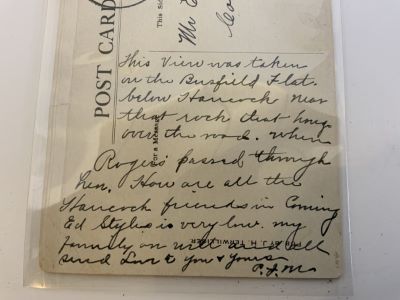 POST CARD
This Sid
For a Message
Mr E
Co
This View was taken
on the Busfield Flat.
below Hancock Near
that rock that hung
over the road. When
Rogers passed through
hen. How are all the
Hancock friends in Coming
Ed Styles is very low. my
family on well and all
send Love to you & yours
P. J. M.
J. H. TERWILLIGER